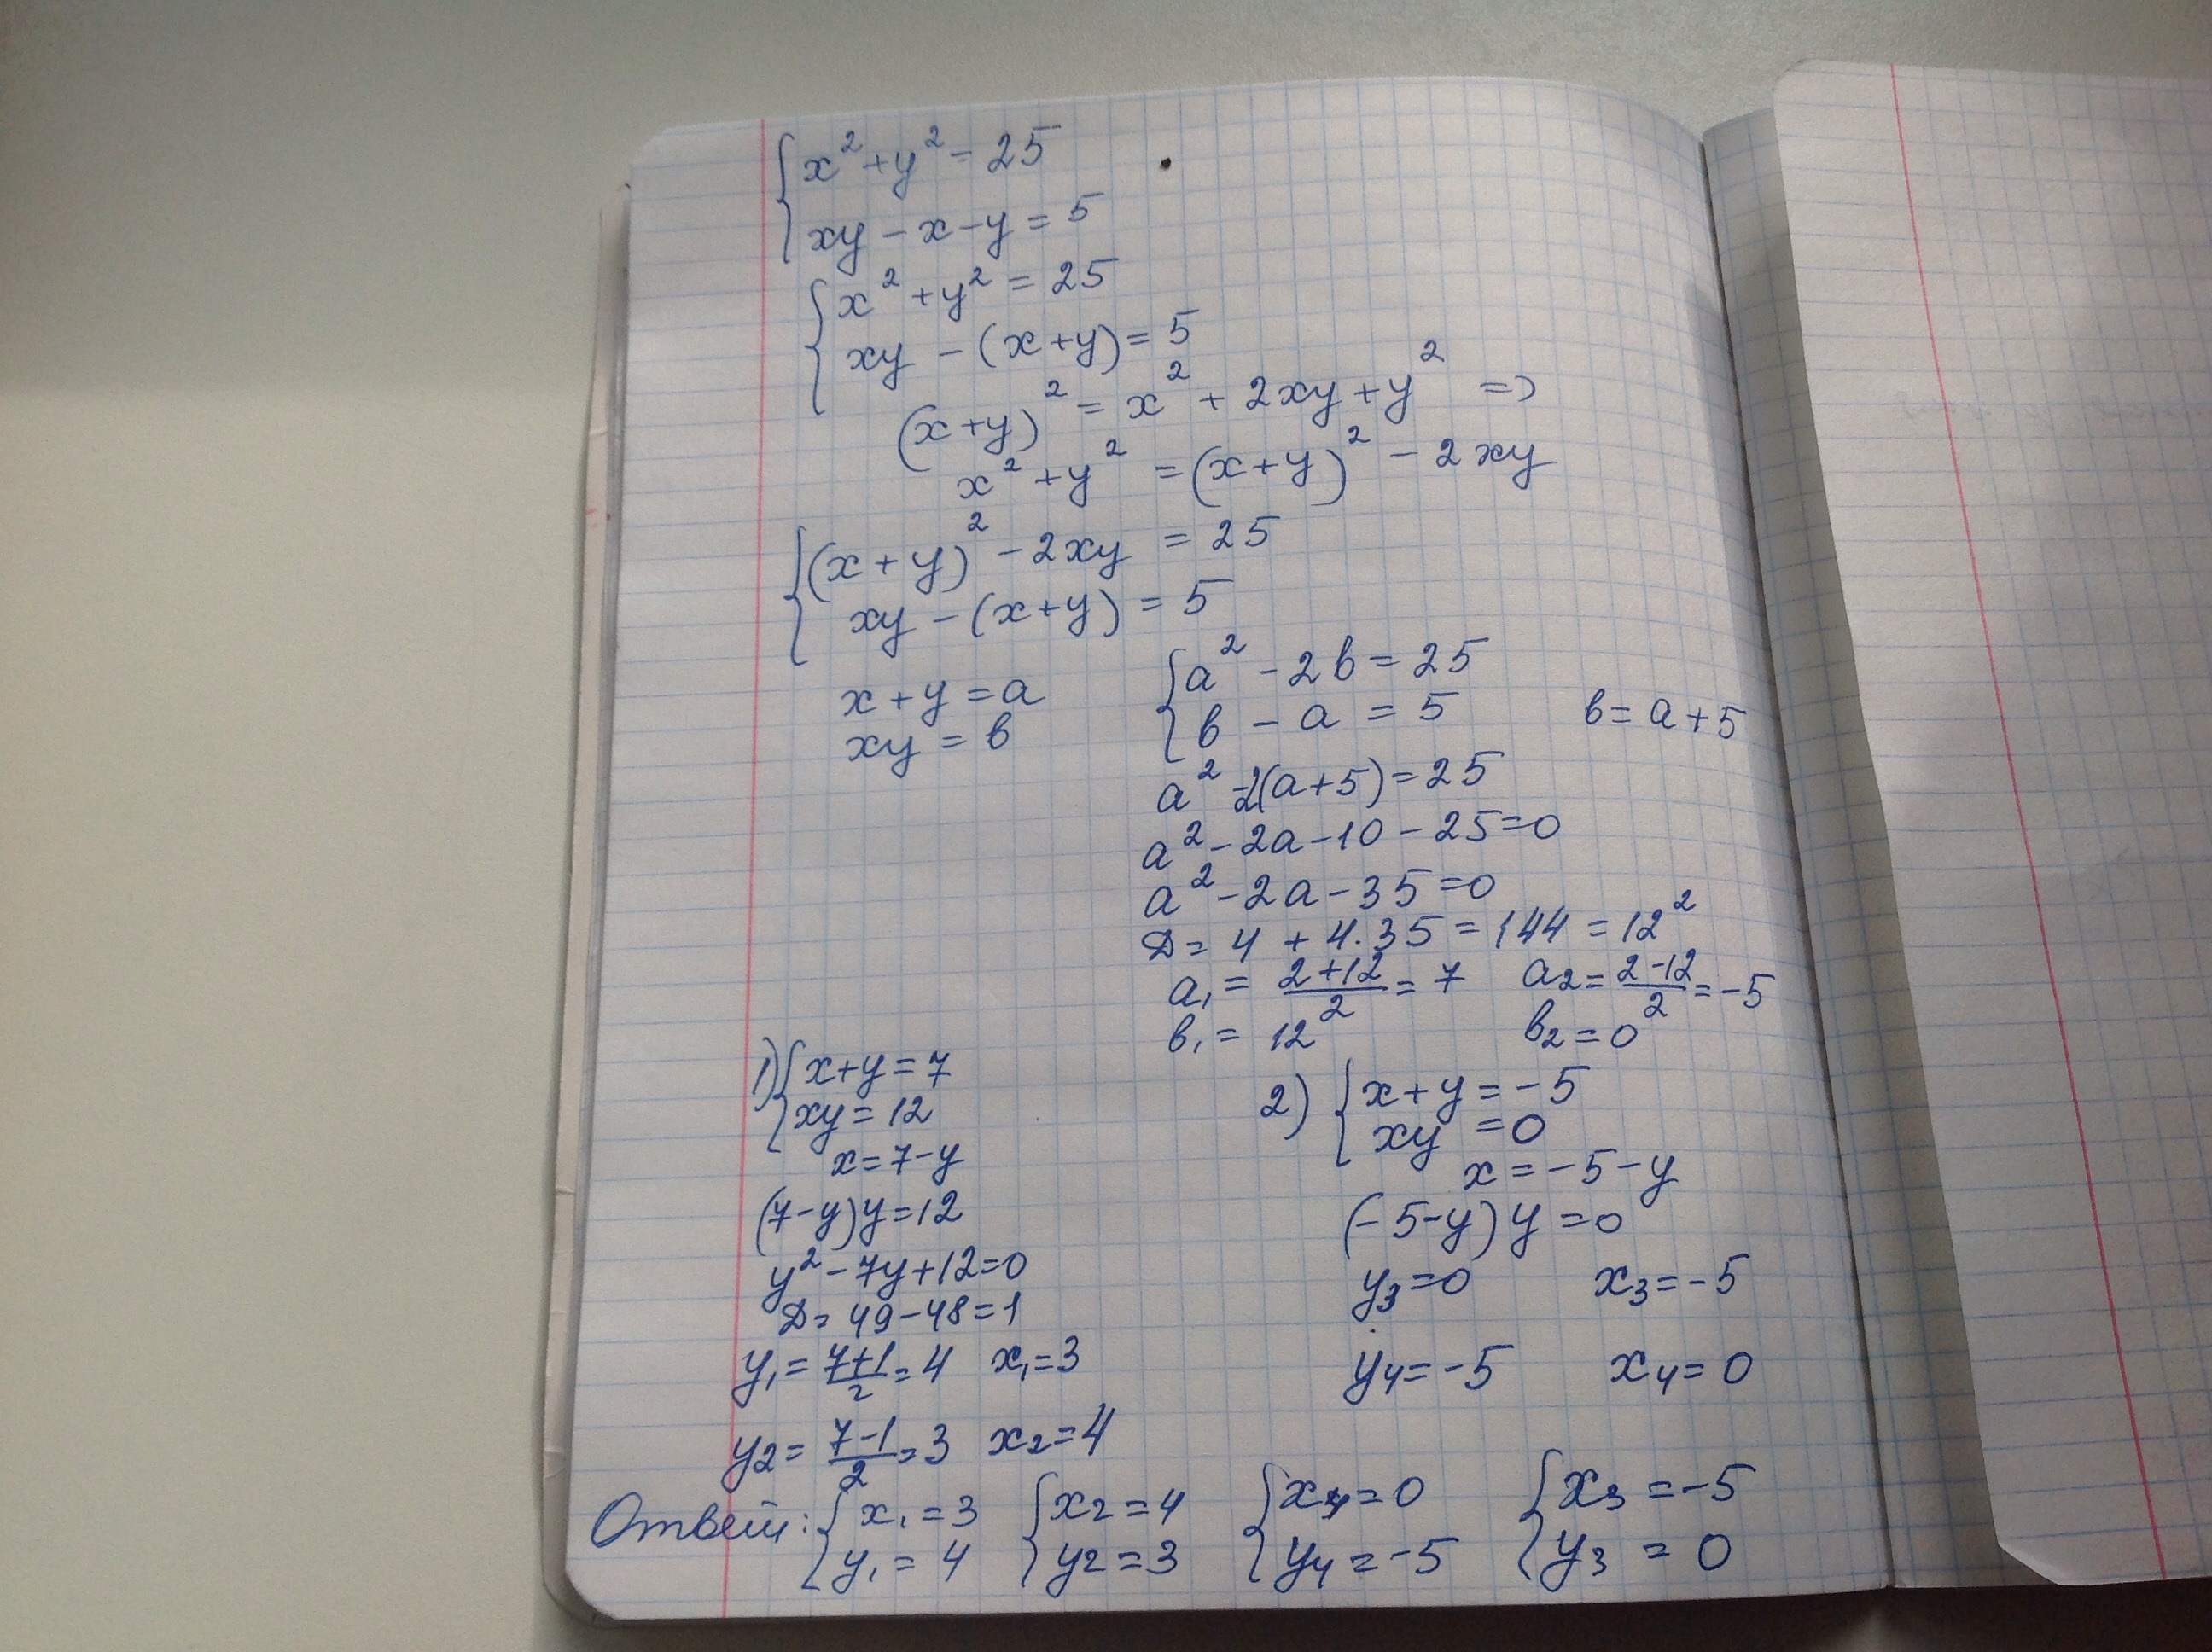 { x² + y² = 25
xy - x - y = 5
{ x² + y² = 25
xy - (x + y) = 5
(x + y)² = x² + 2xy + y² =>
x² + y² = (x + y)² - 2xy
{ (x + y)² - 2xy = 25
xy - (x + y) = 5
x + y = a
xy = в
{ a² - 2в = 25
в - a = 5
в = a + 5
a² - 2(a + 5) = 25
a² - 2a - 10 - 25 = 0
a² - 2a - 35 = 0
Д = 4 + 4·35 = 144 = 12²
a₁ = (2+12)/2 = 7 a₂ = (2-12)/2 = -5
в₁ = 12 в₂ = 0
1) { x + y = 7
xy = 12
x = 7 - y
(7 - y)y = 12
y² - 7y + 12 = 0
Д = 49 - 48 = 1
y₁ = (7+1)/2 = 4 x₁ = 3
y₂ = (7-1)/2 = 3 x₂ = 4
2) { x + y = -5
xy = 0
x = -5 - y
(-5 - y) y = 0
y₃ = 0 x₃ = -5
y₄ = -5 x₄ = 0
Ответ: { x₁ = 3 { x₂ = 4 { x₄ = 0 { x₃ = -5
y₁ = 4 y₂ = 3 y₄ = -5 y₃ = 0